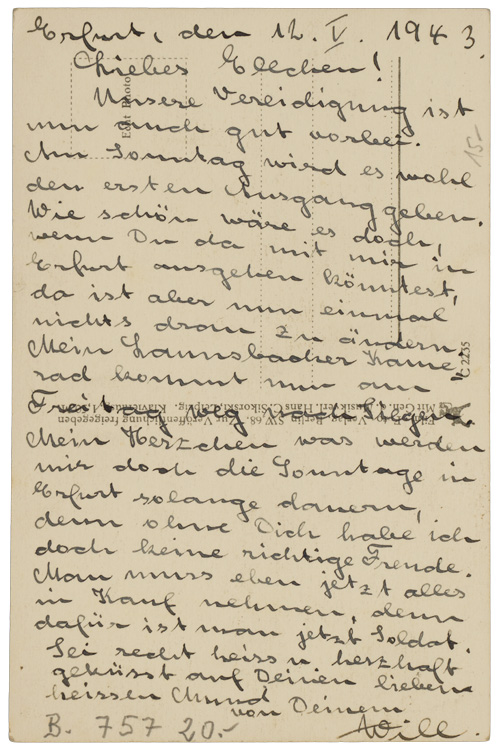 Erfurt, den 12. V. 1943.
Liebes Ellchen!
Unsere Vereidigung ist
nun auch gut vorbei.
Am Sonntag wird es wohl
den ersten Ausgang geben.
Wie schön wäre es doch,
wenn Du da mit mir in
Erfurt ausgehen könntest,
da ist aber nun einmal
nichts dran zu ändern.
Mein Kame-
rad kommt nun am
Freitag weg nach
Mein Herzchen was werden
mir doch die Sonntage in
Erfurt solange dauern,
denn ohne Dich habe ich
doch keine richtige Freude.
Man muss eben jetzt alles
in Kauf nehmen, denn
dafür ist man jetzt Soldat.
Sei recht heiss u herzhaft
geküsst auf Deinen lieben
heissen Mund
von Deinem
Will.
Echt Photo
15-
C 2235
B. 757 20.-